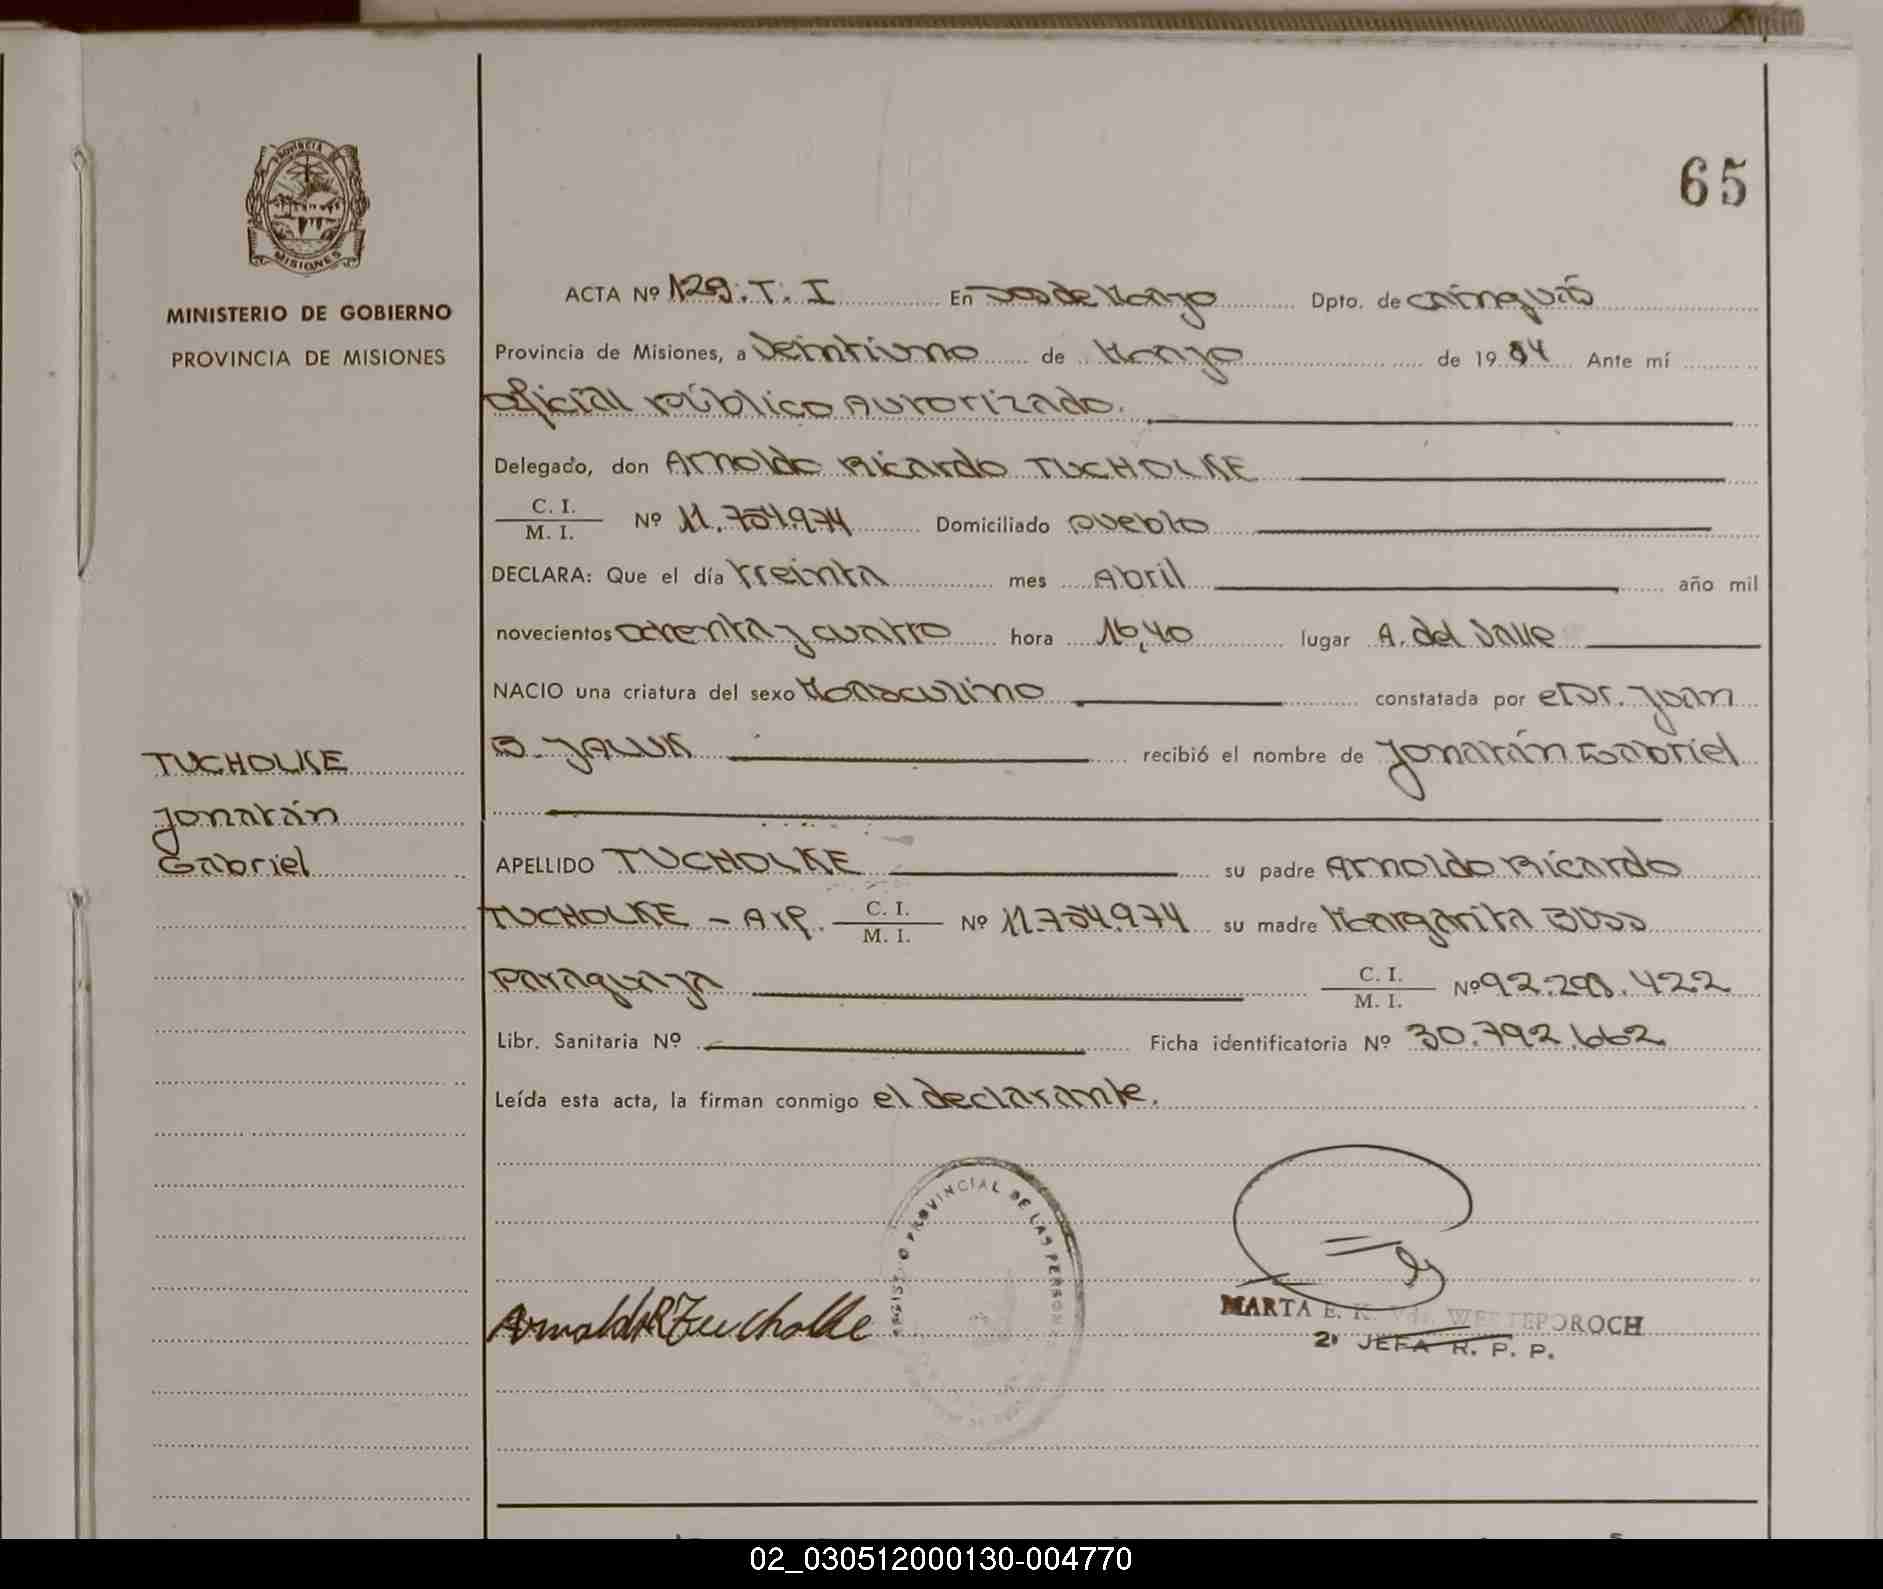 PROVINCIA
MISIONES
MINISTERIO DE GOBIERNO
PROVINCIA DE MISIONES
65
ACTA Nº 129. T. I En Dos de Mayo Dpto. de Cainguás
Provincia de Misiones, a Veintiuno de Mayo de 1984 Ante mí
Oficial Público Autorizado.
Delegado, don Arnoldo Ricardo TUCHOLKE
C. I.
M. I. Nº 11.754.974 Domiciliado Pueblo
DECLARA: Que el día treinta mes Abril año mil
novecientos ochenta y cuatro hora 16,40 lugar A. del Valle
NACIO una criatura del sexo Masculino constatada por el Dr. Juan
recibió el nombre de Jonatán Gabriel
TUCHOLKE
Jonatán
Gabriel
APELLIDO TUCHOLKE su padre Arnoldo Ricardo
TUCHOLKE - Arg. C. I.
M. I. Nº 11.754.974 su madre Margarita Buss
Paraguaya C. I.
M. I. Nº 92.298.422
Libr. Sanitaria Nº Ficha identificatoria Nº 30.792.662
Leída esta acta, la firman conmigo el declarante.
PROVINCIAL DE LAS PERSON
Arnoldo R Tucholke
MARTA E. K. Vda. WESTEPOROCH
2º JEFA R. P. P.
02_030512000130-004770